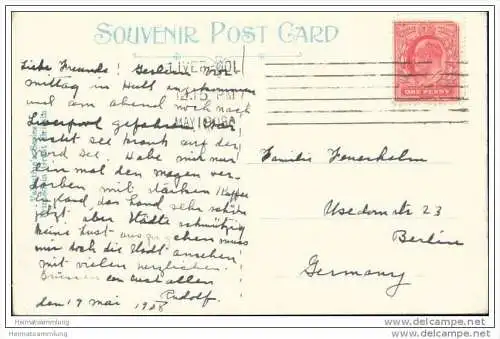 SOUVENIR POST CARD
LIVERPOOL
12.15 PM
MAY 19 08
ONE PENNY
Liebe Freunde! Gestern Vor-
mittag in Hull angekommen
und am abend noch nach
Liverpool gefahren. War
nicht see krank auf der
Nord See. Habe mir nur
ein mal den magen ver-
dorben mit starken Kaffee
England das Land sehr schön
jetzt aber Städte schmutzig
keine Lust auszugehen muss
mir doch die Stadt ansehen
mit vielen herzlichen
Grüssen an euch allen
Rudolf.
den 19 Mai 1908
Familie Feuerhelm
Usedomstr 23
Berlin
Germany
Heimatsammlung.net
Heimatsammlung.net